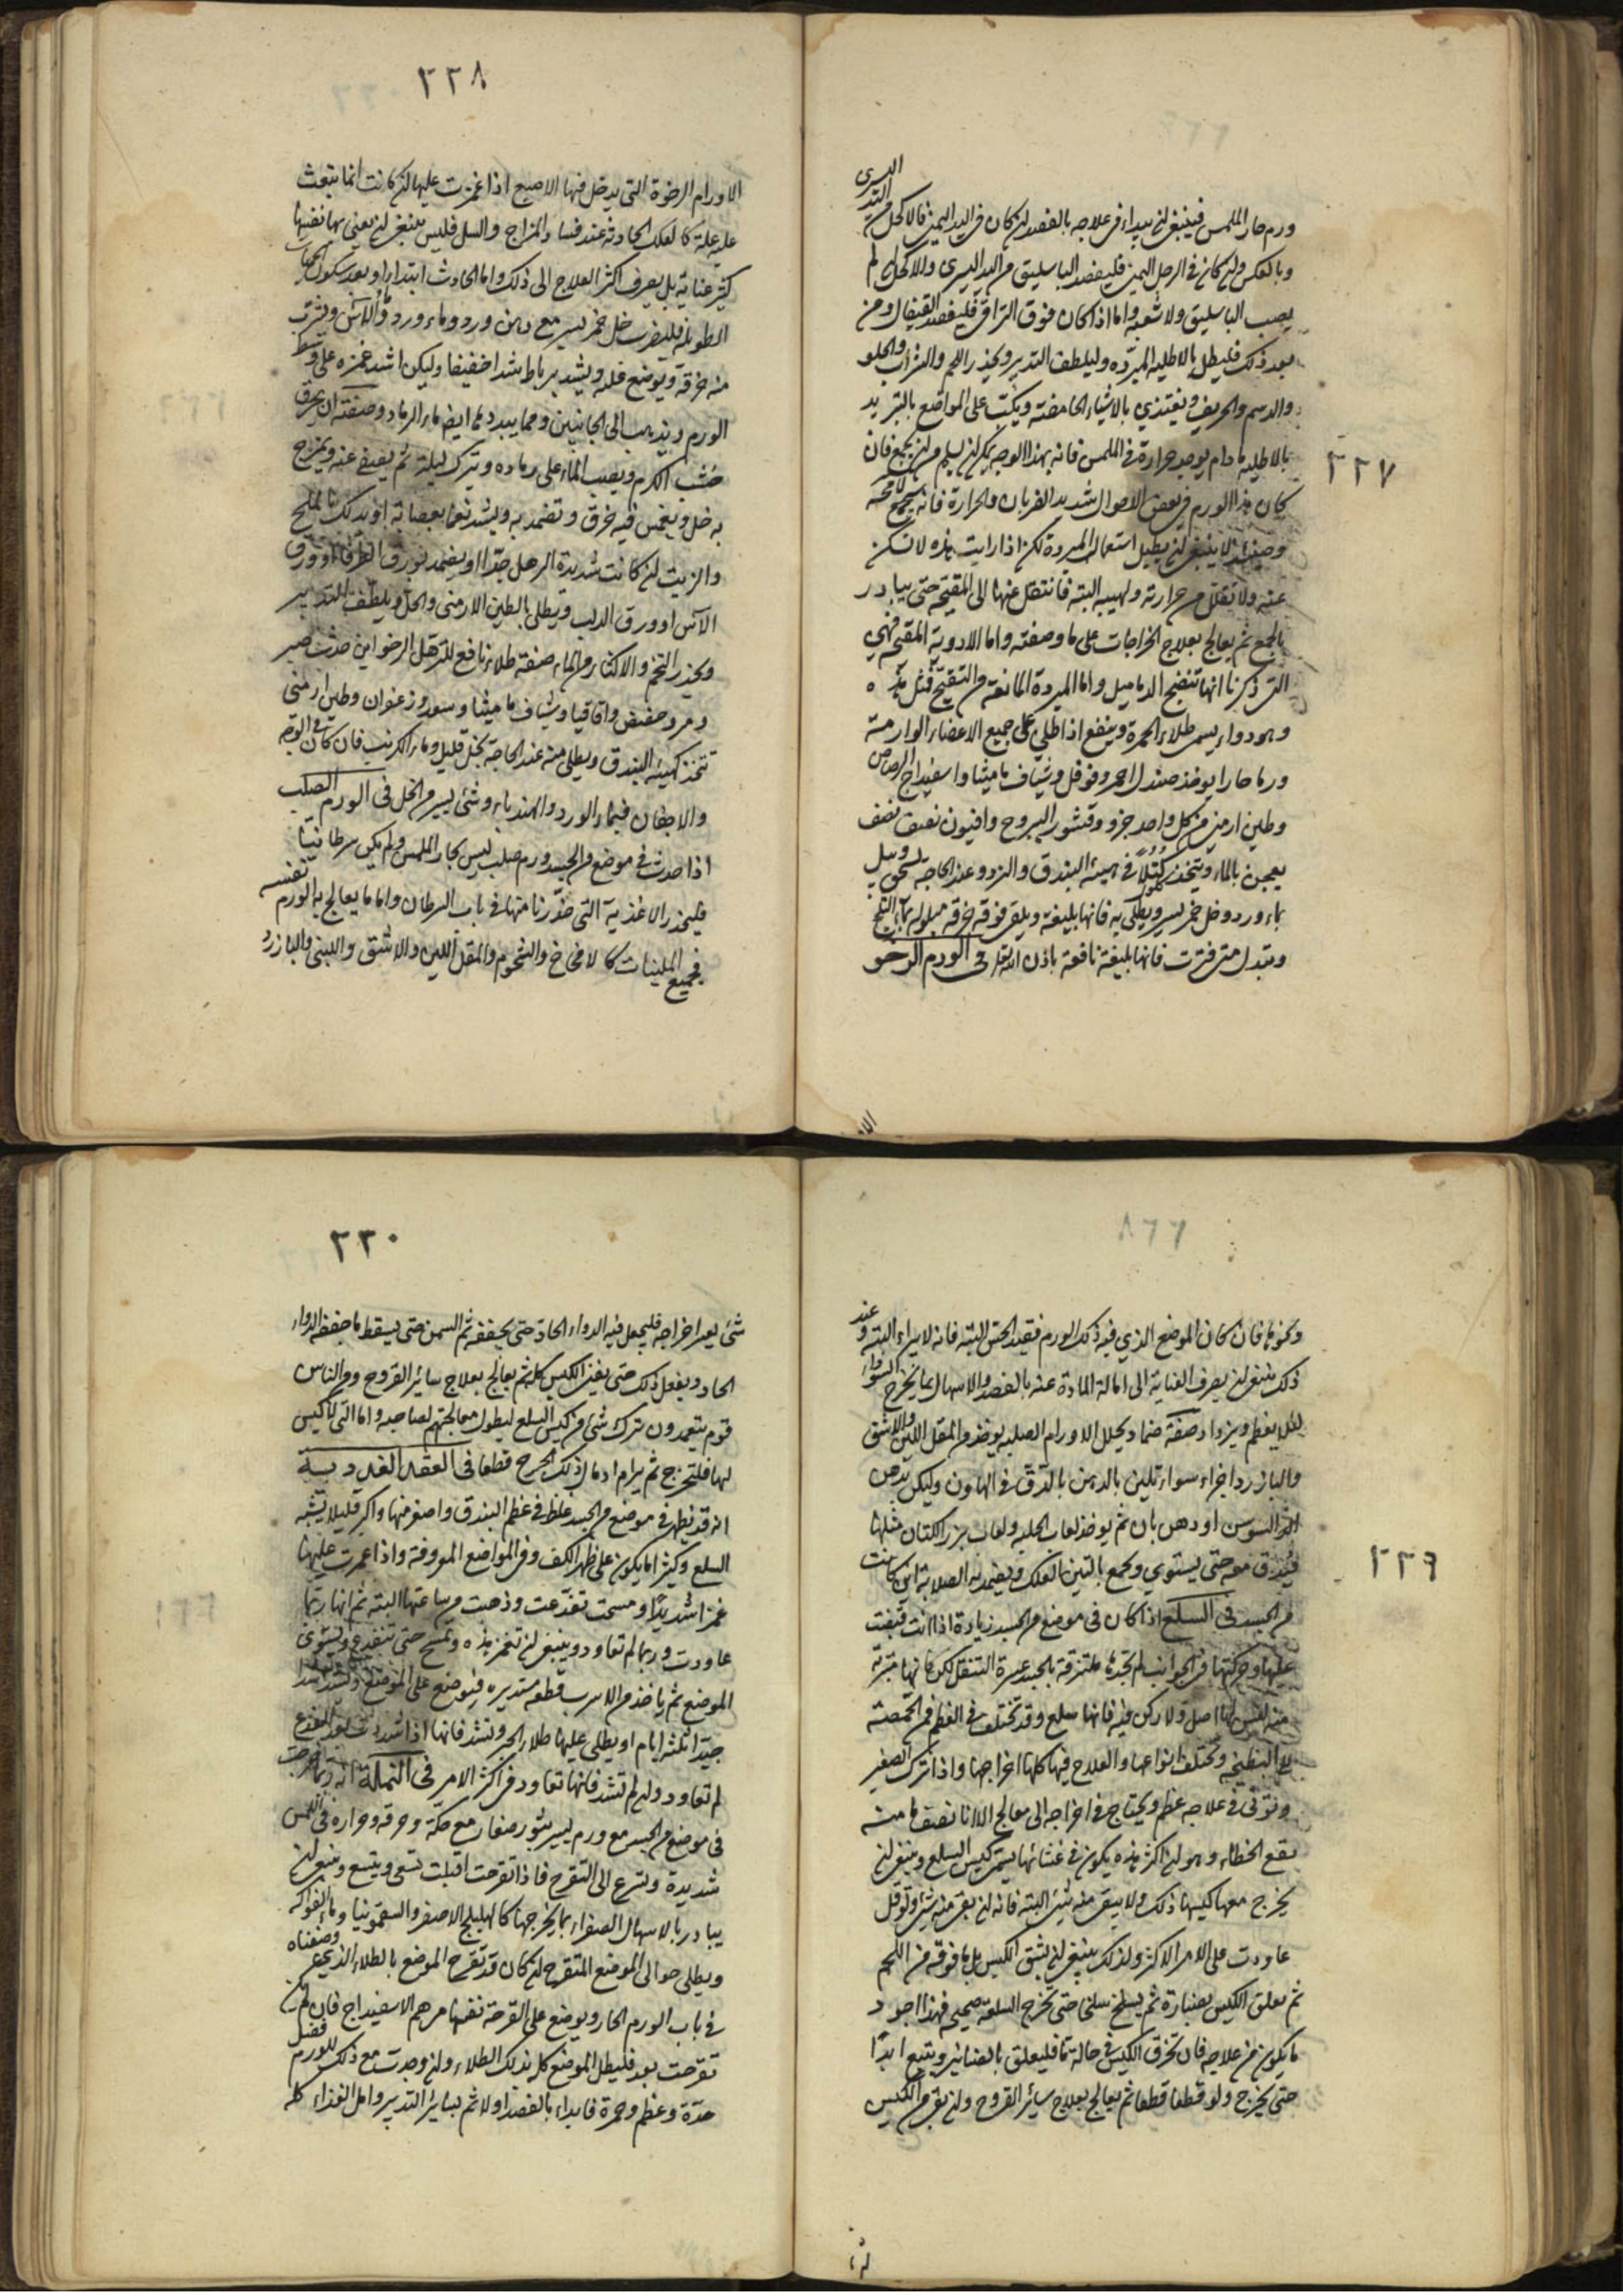 ٢٢٧
اليسرى
ورم حار الملمس فينبغي ان يبداء في علاجه بالفصد ان كان في اليد اليمين فالاكحل من اليد
وبالعكس وان كان في الرجل اليمين فليفصد الباسليق من اليد اليسرى والاكحل ان لم
يصب الباسليق ولا شعبه واما اذا كان فوق التراقي فليفصد القيفال ومن
بعد ذلك فليطل بالاطليه المبرّده وليلطف التدبير ويحذر اللحم والشراب والحلو
والدسم والحريف ويغتذي بالاشياء الحامضة ويكب على المواضع بالتبريد
بالاطليه ما دام يوجد حرارة في الملمس فانه بهذا الوجه يمكن ان يسلم من ان يجمع فان
كان هذا الورم في بعض الاحوال شديد الضربان والحرارة فانه سيجمع لا محة
وحينئذ لا ينبغي ان يطيل استعمال المبردة لكن اذا رايت هذه لا تسكن
عنه ولا تقلل من حرارته ولهيبه البتة فانتقل عنها الى المقيحة حتى يبادر
بالجمع ثم يعالج بعلاج الخراجات على ما وصفته واما الادوية المقيحة فهي
التي ذكرنا انها تنضج الدماميل واما المبردة المانعة من التقيح فمثل هذه
وهو دواء يسمى طلاء الحمرة وينفع اذا طلي على جميع الاعضاء الوارمة
ورما حارا يوخذ صندل احمر وفوفل وشياف ماميثا واسفيداج الرصاص
وطين ارمني من كل واحد جزو وقشور اليبروح وافيون نصف نصف
يعجن بالماء ويتخذ كُتُلاً في هيئة البندق والنرد وعند الحاجة تسحق ويبل
بماء ورد وخل خمر يسير ويطلى به فانها بليغة ويلقى فوقه خرقة مبلولة بماء الثلج
وتبدل متى فترت فانها بليغة نافعة باذن الله تعالى في الورم الرخو
٢٢٨
الاورام الرخوة التي يدخل فيها الاصبع اذا غمزت عليها ان كانت انما تبعث
عليه علة كالعلل الحادثة عند فساد المزاج والسل فليس ينبغي ان يعنى بها نفسها
كثير عناية بل يصرف اكثر العلاج الى ذلك واما الحادث ابتداء او بعد سكون الحميات
الطويلة فليضرب خل خمر يسير مع دهن ورد وماء ورد وماء الآس وتشرب
منه خرقة ويوضع عليه ويشد برباط شدا خفيفا وليكن اشد غمزه على وسط
الورم ويذهب الى الجانبين ومما يبدد هذا ايضا ماء الرماد وصفته ان يحرق
خشب الكرم ويصب الماء على رماده ويترك ليلة ثم يصفى عنه ويمزج
به خل ويغمس فيه خرق وتضمد به ويشد نعما بعصابة او يدلك بالملح
والزيت ان كانت شديدة الرهل جدّا او يضمد بورق الطرفا او ورق
الآس او ورق الدلب ويطلى بالطين الارمني والخل ويلطف التدبير
ويحذر التخم والاكثار من الماء صفة طلاء نافع للترهل الرخو اين حدث صبر
ومر وحضض واقاقيا وشياف ماميثا وسعد وزعفران وطين ارمني
تتخذ كهيئة البندق ويطلى منه عند الحاجة بخل قليل وماء الكرنب فان كان في الوجه
والاجفان فبماء الورد والهندباء وشئ يسير من الخل في الورم الصلب
اذا حدث في موضع من الجسد ورم صلب ليس بحار الملمس ولم يكن سرطانيّا
فليحذر الاغذية التي حذّرنا منها في باب السرطان واما ما يعالج به الورم نفسه
فجميع الملينات كالامخاخ والشحوم والمقل اللين والاشق واللبنى والبازرد
٢٢٩
ونحوها فان كان الموضع الذي فيه ذلك الورم فقد الحس البتة فانه لا يبراء البتة وعند
ذلك ينبغي ان يصرف العناية الى امالة المادة عنه بالفصد والاسهال بما يخرج السوداء
لئلا يعظم ويزداد صفة ضماد يحلل الاورام الصلبه يوخذ من المقل اللين والاشق
والبازرد اجزاء سواء تلين بالدهن بالدّق في الهاون وليكن بدهن
السوسن او دهن بان ثم يوخذ لعاب الحلبه ولعاب بزر الكتان مثلها
فيدق معه حتى يستوي ويجمع بالتين العلك ويضمد به الصلابة اين كانت
من الجسد في السلع اذا كان في موضع من الجسد زيادة اذا انت قبضت
عليها وحركتها من الجوانب لم تجدها ملتزقة بالجسد عسرة التنقل لكن كانها متبرئة
منه ليس لها اصل ولا ركن فيه فانها سلع وقد تختلف في العظم فمن الحمّصة
الى البطيخة وتختلف انواعها والعلاج فيها كلها اخراجها واذا ترك الصغير
وتوني في علاجه عظم ويحتاج في اخراجه الى معالج الا انا نصف ما منه
يقع الخطاء وهو ان اكثر هذه يكون في غشائها يسمى كيس السلع وينبغي ان
يخرج معها كيسها ذلك ولا يبقى منه شئ البتة فانه ان بقى منه شئ وقوقل
عاودت على الامر الاكثر ولذلك ينبغي ان لا يشق الكيس بل ما فوقه من اللحم
ثم يعلق الكيس بصنارة ثم يسلخ سلخا حتى تخرج السلعة صحيحة فهذا اجود
ما يكون من علاجه فان تخرق الكيس في حالة ما فليعلق بالصنانير ويتبع ابدًا
حتى يخرج ولو قطعا قطعا ثم يعالج بعلاج سائر القروح وان بقي من الكيس
٢٣٠
شئ يعسر اخراجه فليجعل فيه الدواء الحاد حتى يجففه ثم السمن حتى يسقط ما جففه الدواء
الحاد ويفعل ذلك حتى يفنى الكيس كله ثم يعالج بعلاج سائر القروح ومن الناس
قوم يتعمدون ترك شئ من كيس السلع ليطول معالجتهم لصاحبه واما التي لا كيس
لها فلتخرج ثم يرام ادمال ذلك الجرح قطعا في العقد الغددية
انه قد يظهر في موضع من الجسد غلظ في عظم البندق واصغر منها واكبر قليلا تشبه
السلع وكثيرا ما يكون على ظهر الكف وفي المواضع المعروفة واذا غمزت عليها
غمزا شديدًا ومسحت تفدّغت وذهبت من ساعتها البتة ثم انها ربّما
عاودت وربما لم تعاود وينبغي ان تغمز هذه وتمسح حتى تنفدغ ويستوي
الموضع ثم ياخذ من الاسرب قطعة مستديرة فيوضع على الموضع وتشد شدا
جيدا ثلثة ايام او يطلى عليها طلاء الجبر وتشد فانها اذا شددت بعد الفدغ
لم تعاود وان لم تشد فانها تعاود في اكثر الامر في النملة انه ربما خرجت
في موضع من الجسد مع ورم يسير بثور صغار مع حكة وحرقة وحرارة في اللمس
شديدة وتسرع الى التقرح فاذا تقرحت اقبلت تسعى ويتسع وينبغي ان
يبادر بالاسهال الصفراء بما يخرجها كالهليلج الاصفر والسقمونيا وماء الفواكه
ويطلى حوالى الموضع المتقرح ان كان قد تقرح الموضع بالطلاء الذي وصفناه
في باب الورم الحار ويوضع على القرحة نفسها مرهم الاسفيداج فان لم يكن
تقرحت بعد فليطل الموضع كله بذلك الطلاء وان وجدت مع ذلك للورم فضل
حدّة وعظم وحمرة فابداء بالفصد اولا ثم بسائر التدبير وامل الغذاء كله